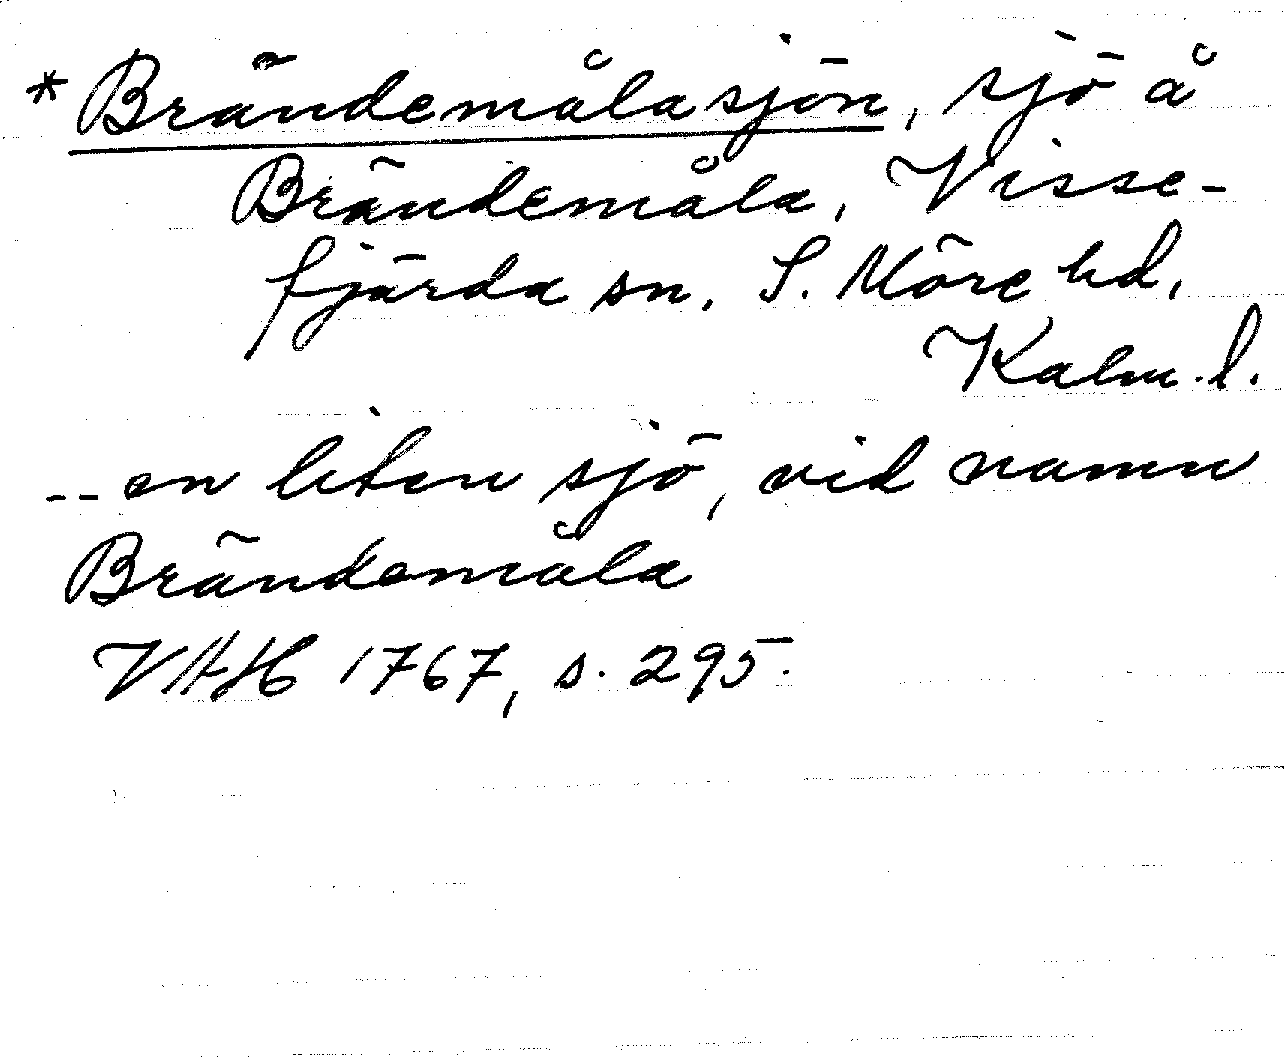 *Brändemålasjön, sjö å
Brändemåla, Visse-
fjärda sn. S. Möre hd,
Kalm. l.
-- en liten sjö, vid namn
Brändemåla
VAH 1767, s. 295.